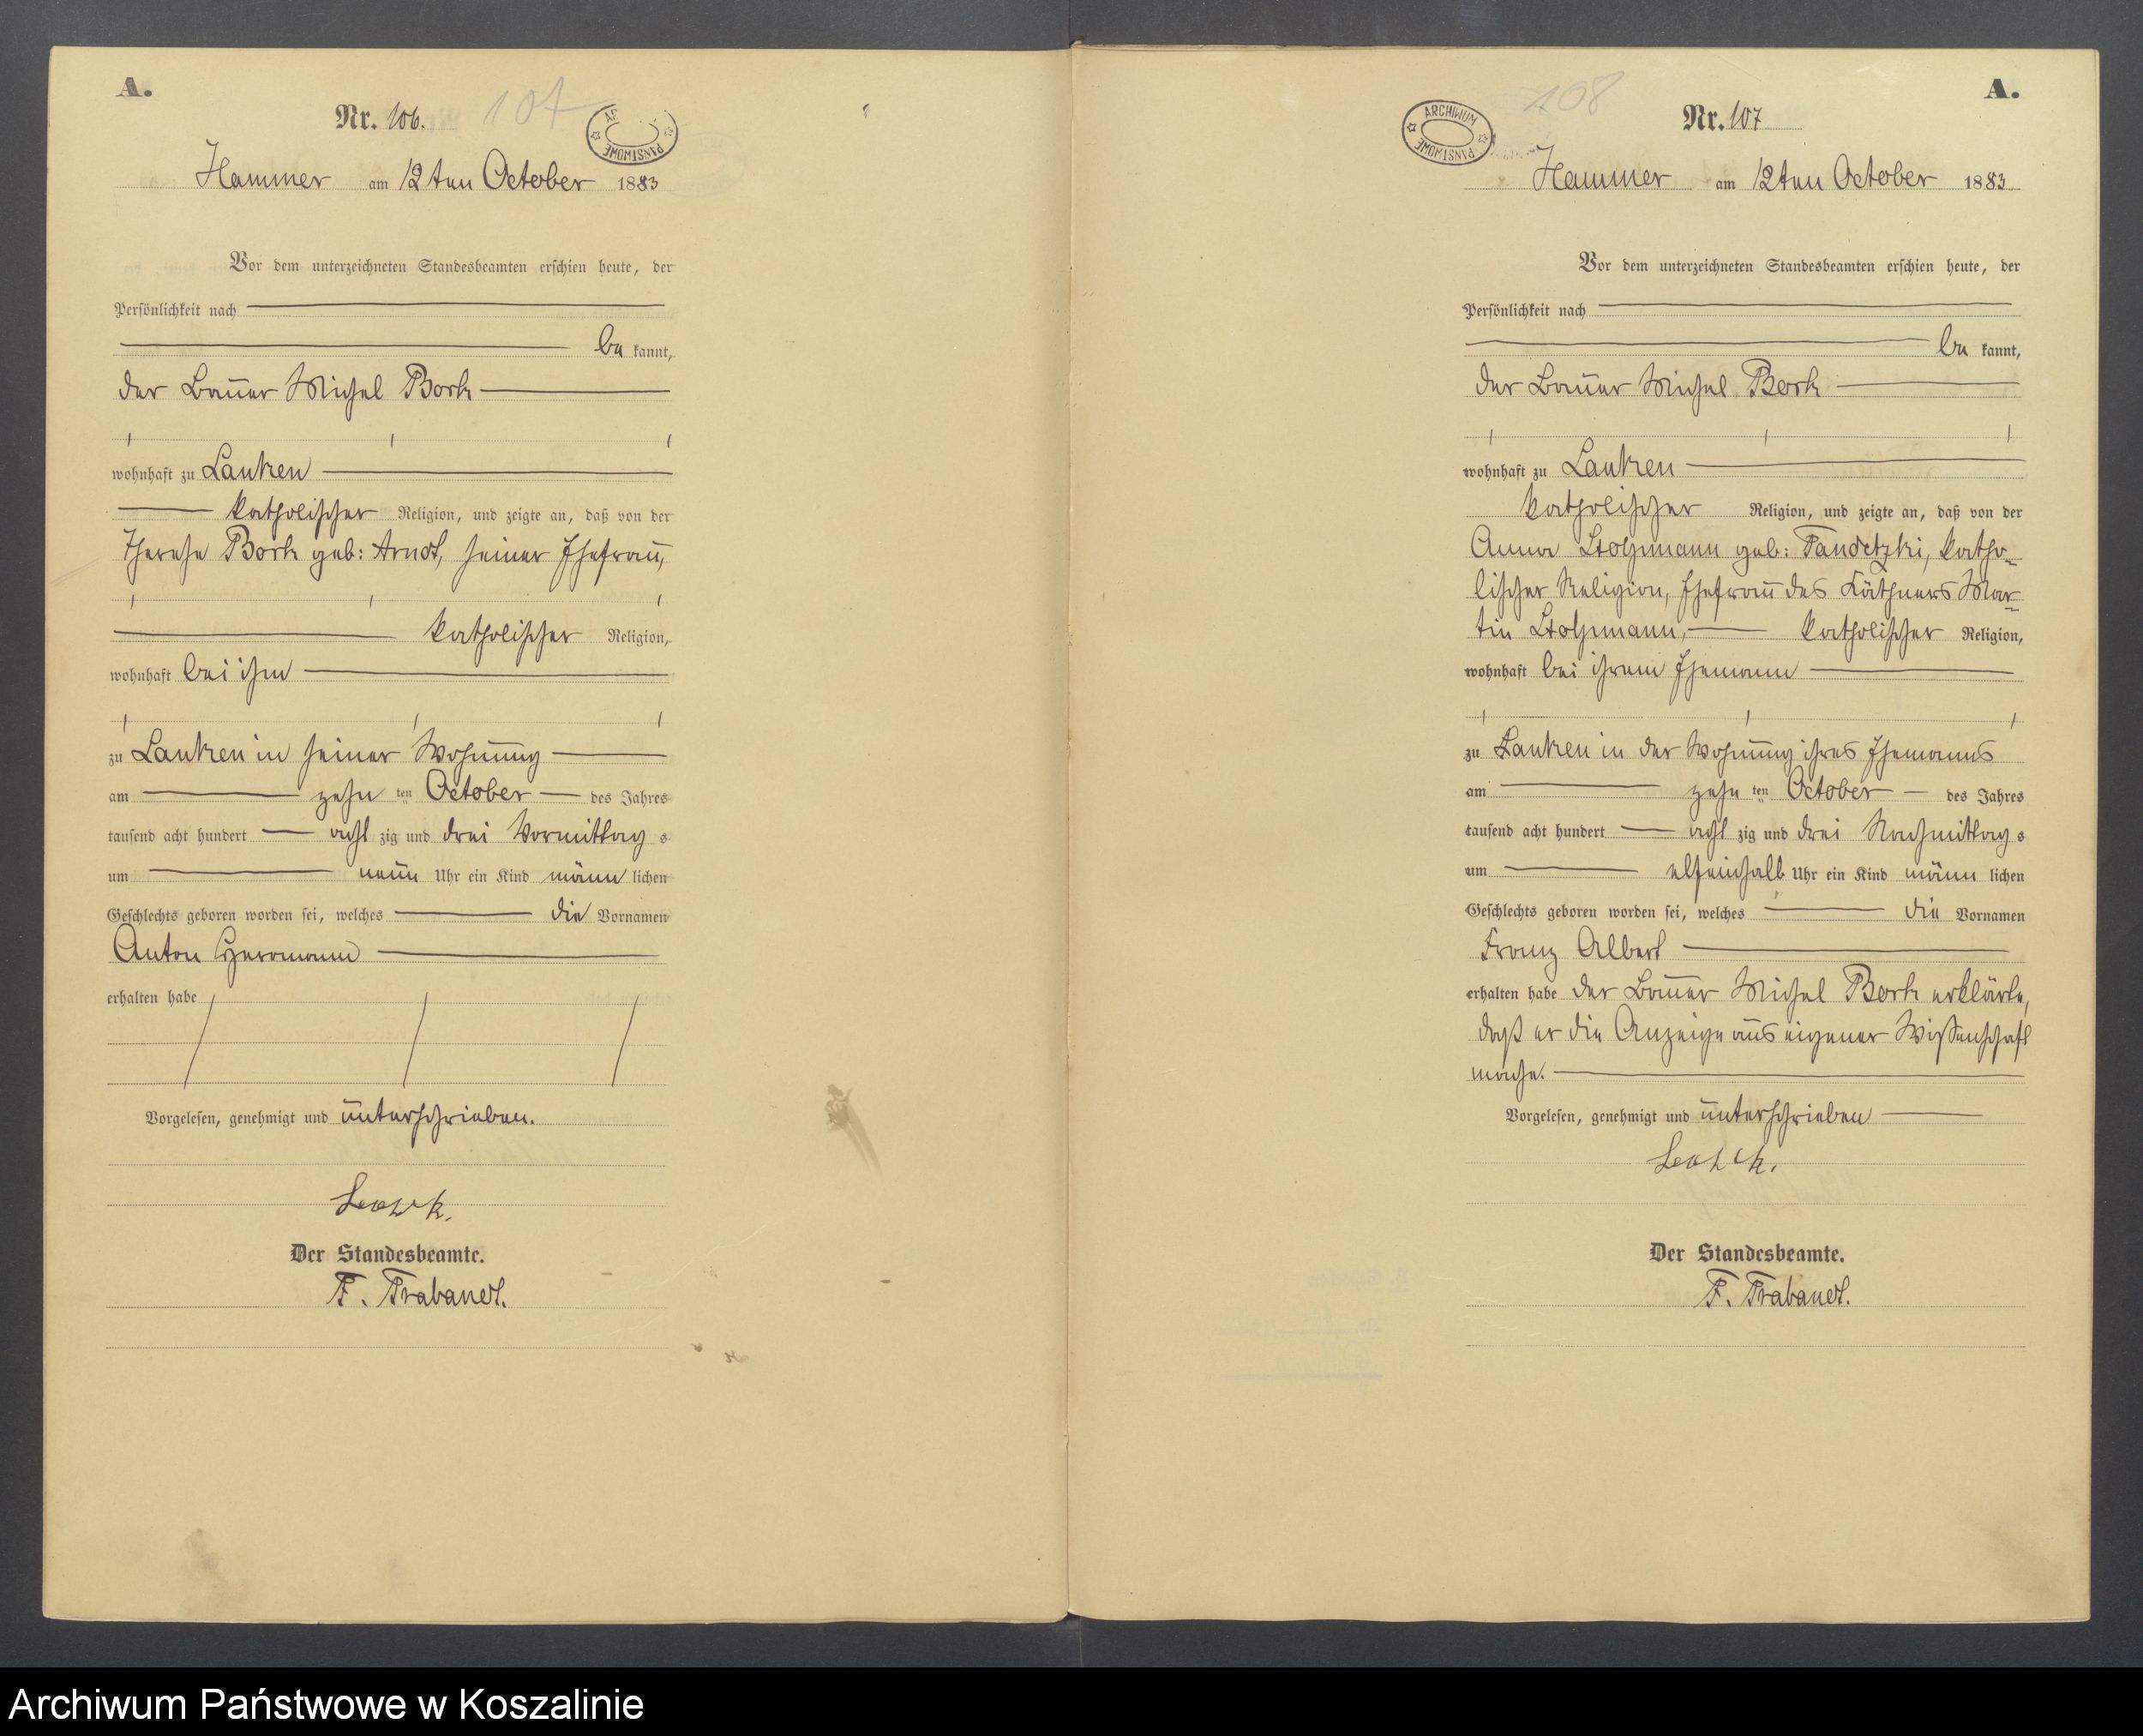 A.
Nr. 106.
107
ARCHIWUM PAŃSTWOWE
Hammer am 12ten October 1883
Vor dem unterzeichneten Standesbeamten erschien heute, der
Persönlichkeit nach
be kannt,
der Bauer Michel Bork
wohnhaft zu Lanken
katholischer Religion, und zeigte an, daß von der
Therese Bork geb: Arndt, seiner Ehefrau,
katholischer Religion,
wohnhaft bei ihm
zu Lanken in seiner Wohnung
am zehn ten October des Jahres
tausend acht hundert acht zig und drei Vormittag s
um neun Uhr ein Kind männ lichen
Geschlechts geboren worden sei, welches die Vornamen
Anton Herrmann
erhalten habe
Vorgelesen, genehmigt und unterschrieben.
Der Standesbeamte.
F. Trabandt.
A.
108
Nr. 107
ARCHIWUM PAŃSTWOWE
Hammer am 12ten October 1883
Vor dem unterzeichneten Standesbeamten erschien heute, der
Persönlichkeit nach
be kannt,
der Bauer Michel Bork
wohnhaft zu Lanken
katholischer Religion, und zeigte an, daß von der
Anna Stolzmann geb: Pandetzki, katho-
lischer Religion, Ehefrau des Käthners Mar-
tin Stolzmann, katholischer Religion,
wohnhaft bei ihrem Ehemann
zu Lanken in der Wohnung ihres Ehemanns
am zehn ten October des Jahres
tausend acht hundert acht zig und drei Nachmittag s
um elfeinhalb Uhr ein Kind männ lichen
Geschlechts geboren worden sei, welches die Vornamen
Franz Albert
erhalten habe der Bauer Michel Bork erklärte,
daß er die Anzeige aus eigener Wissenschaft
mache.
Vorgelesen, genehmigt und unterschrieben
Der Standesbeamte.
F. Trabandt.
Archiwum Państwowe w Koszalinie